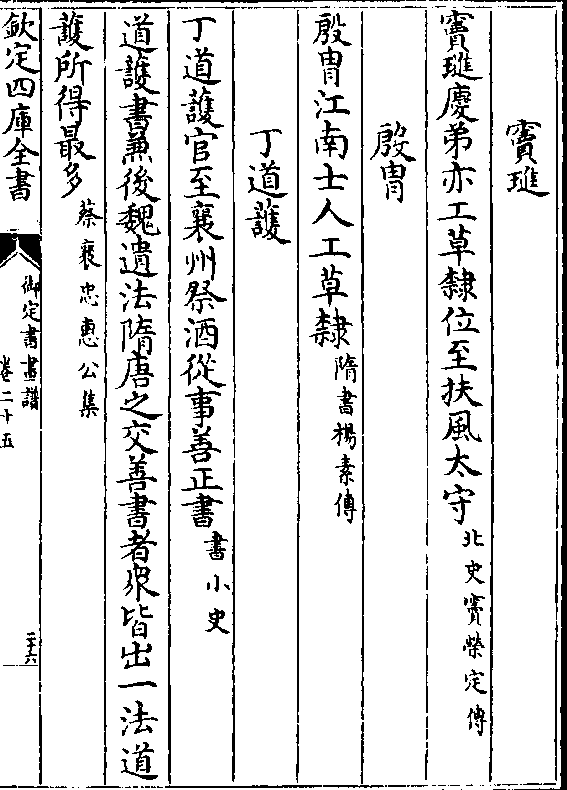 竇璡
竇璡慶弟亦工草隸位至扶風太守北史竇榮定傳
殷胄
殷胄江南士人工草隸隋書楊素傳
丁道護
丁道護官至襄州祭酒從事善正書書小史
道護書兼後魏遺法隋唐之交善書者衆皆出一法道
護所得最多蔡襄忠惠公集
欽定四庫全書
御定書畫譜
卷二十五
二十六